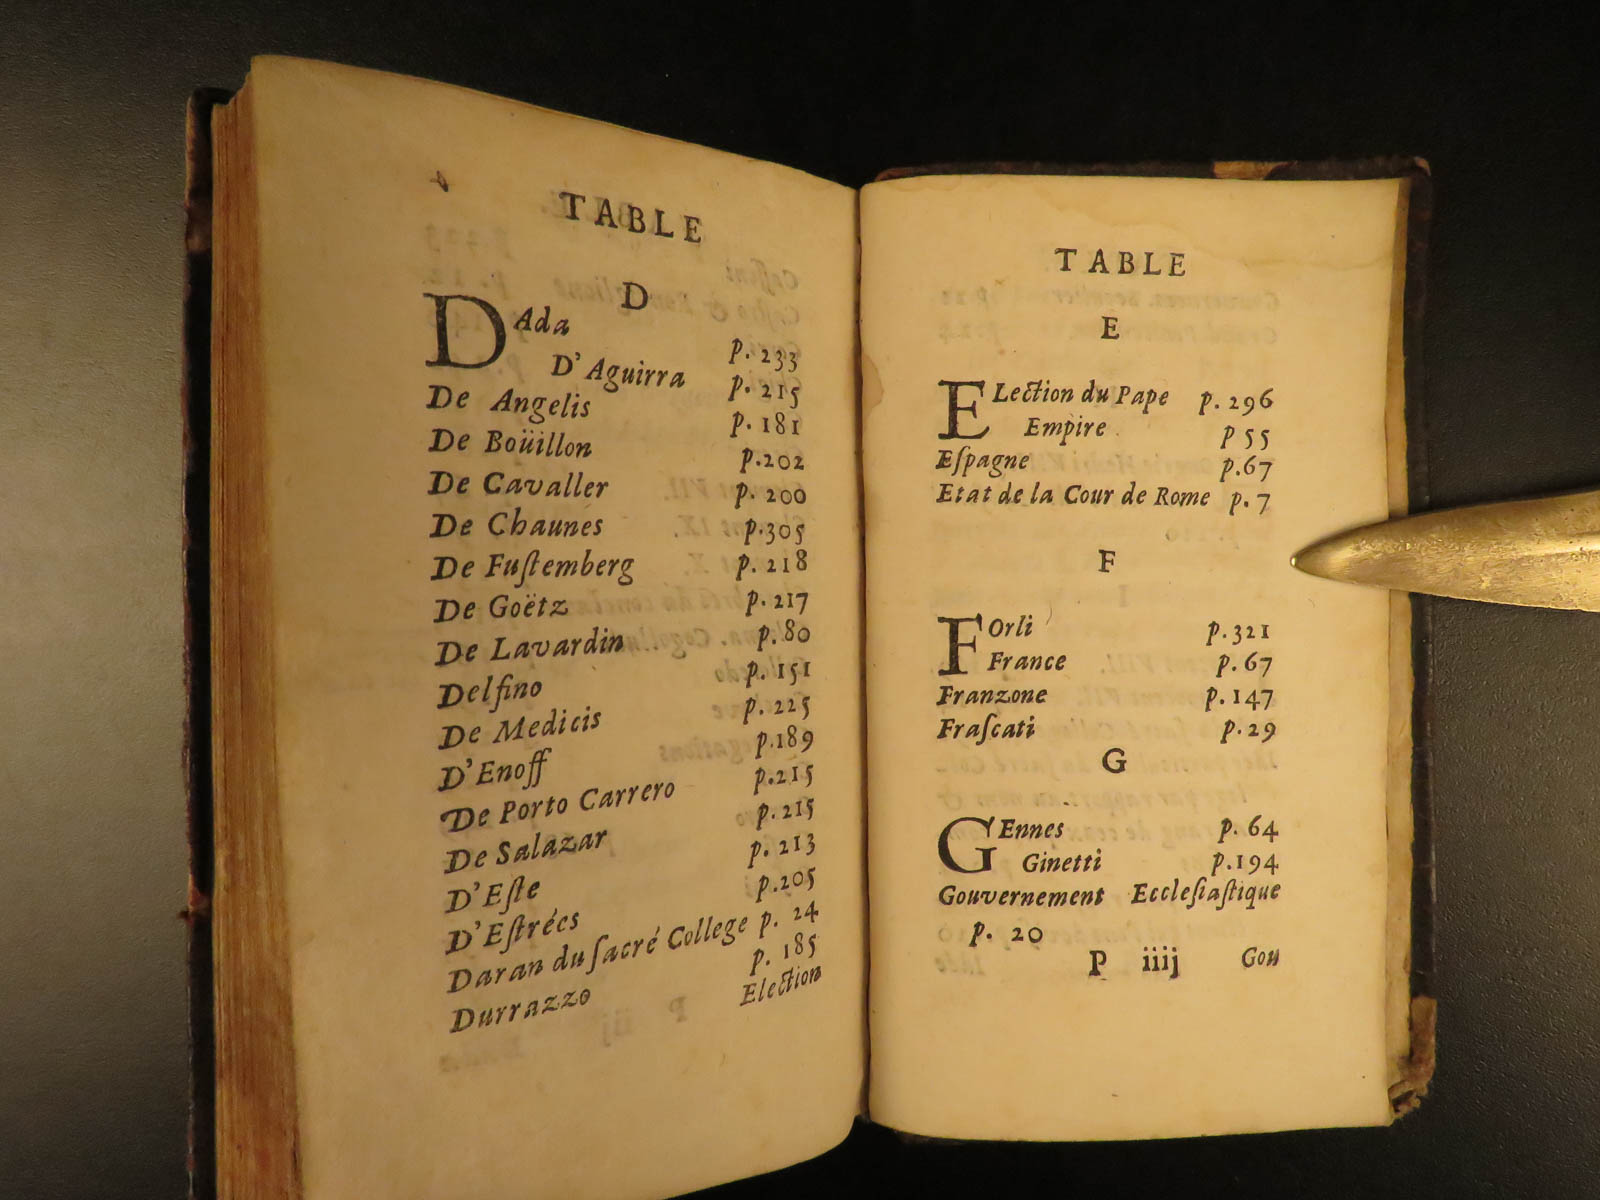 TABLE
D
DAda p. 233
D' Aguirra p. 215
De Angelis p. 181
De Boüillon p.202
De Cavaller p. 200
De Chaunes p.305
De Fuſtemberg p. 218
De Goëtz p. 217
De Lavardin p. 80
Delfino p. 151
De Medicis p. 225
D'Enoff p.189
De Porto Carrero p.215
De Salazar p. 215
D'Eſte p. 213
D'Eſtrées p.205
Daran du ſacré College p. 24
Durrazzo p. 185
Election
TABLE
E
ELection du Pape p. 296
Empire p 55
Eſpagne p.67
Etat de la Cour de Rome p. 7
F
FOrli p.321
France p. 67
Franzone p. 147
Fraſcati p. 29
G
GEnnes p. 64
Ginetti p.194
Gouvernement Eccleſiaſtique
p. 20
P iiij Gou